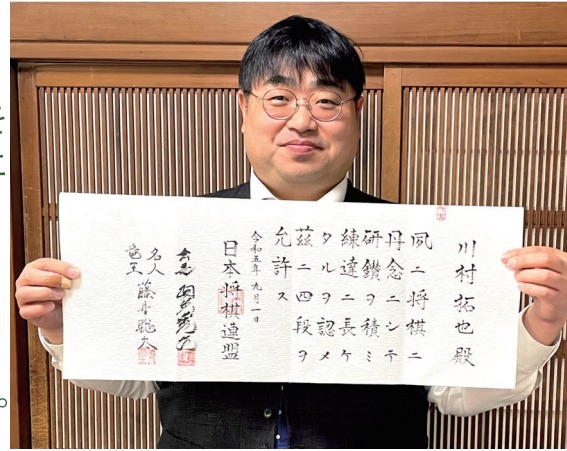 川村拓也殿
夙ニ将棋ニ
丹念ニシテ
研鑽ヲ積ミ
練達ニ長ケ
タルヲ認メ
茲ニ四段ヲ
允許ス
令和五年九月一日
日本将棋連盟
会長 羽生善治
名人
竜王 藤井聡太